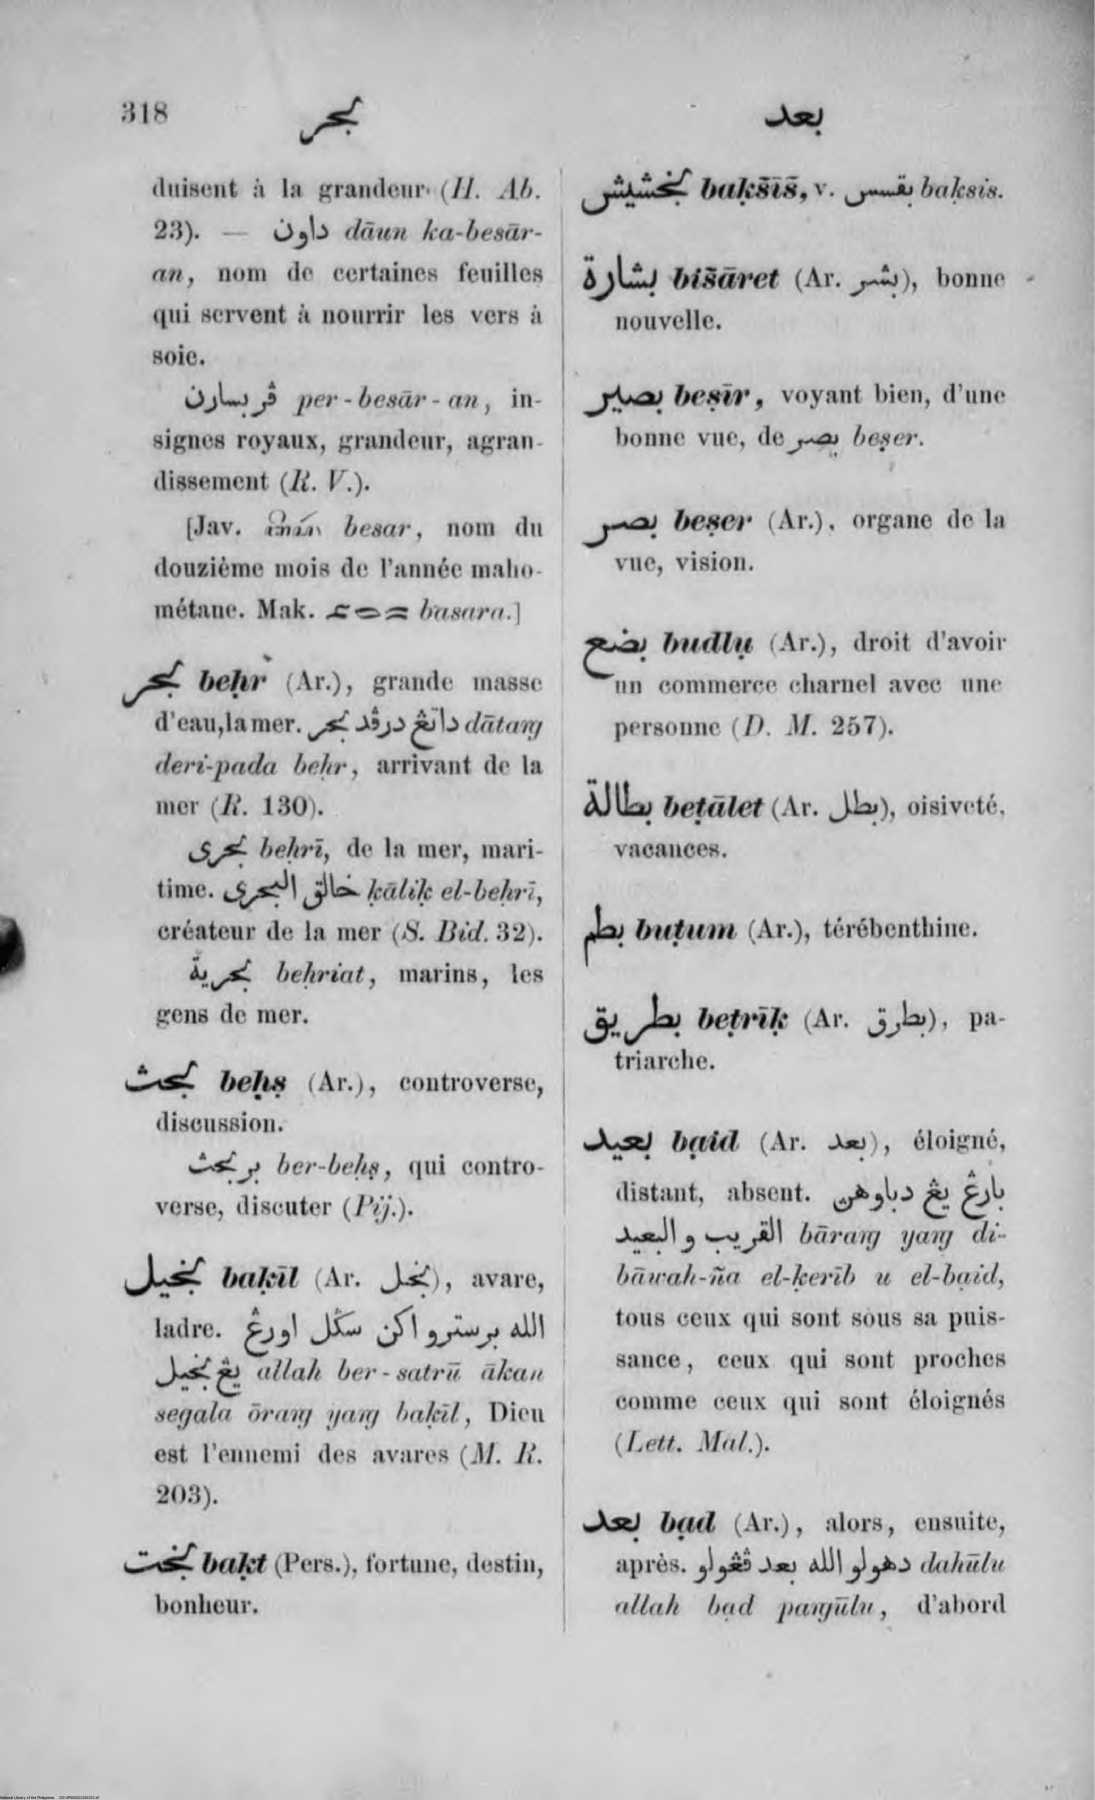 318
بحر
بعد
duisent à la grandeur (H. Ab.
23). — داون dāun ka-besār-
an, nom de certaines feuilles
qui servent à nourrir les vers à
soie.
ڤربسارن per-besār-an, in-
signes royaux, grandeur, agran-
dissement (R. V.).
[Jav. besar, nom du
douzième mois de l'année maho-
métane. Mak. basara.]
بحر beḥr (Ar.), grande masse
d'eau, la mer. داتڠ درڤد بحر dātaŋ
deri-pada beḥr, arrivant de la
mer (R. 130).
بحرى beḥrī, de la mer, mari-
time. خالق البحرى ḳāliḳ el-beḥrī,
créateur de la mer (S. Bid. 32).
بحرية beḥriat, marins, les
gens de mer.
بحث beḥṣ (Ar.), controverse,
discussion.
بربحث ber-beḥṣ, qui contro-
verse, discuter (Pij.).
بخيل baḳīl (Ar. بخل), avare,
ladre. الله برسترو اكن سڬل اورڠ
يڠ بخيل allah ber-satrū ākan
segala ōraŋ yaŋ baḳīl, Dieu
est l'ennemi des avares (M. R.
203).
بخت baḳt (Pers.), fortune, destin,
bonheur.
بخشيش baḳšīš, v. بقسس baḳsis.
بشارة bišāret (Ar. بشر), bonne
nouvelle.
بصير beṣīr, voyant bien, d'une
bonne vue, de بصر beṣer.
بصر beṣer (Ar.), organe de la
vue, vision.
بضع budlụ (Ar.), droit d'avoir
un commerce charnel avec une
personne (D. M. 257).
بطالة beṭālet (Ar. بطل), oisiveté,
vacances.
بطم buṭum (Ar.), térébenthine.
بطريق beṭrīḳ (Ar. بطرق), pa-
triarche.
بعيد bạid (Ar. بعد), éloigné,
distant, absent. بارڠ يڠ دباوهن
القريب و البعيد bāraŋ yaŋ di-
bāwah-ña el-ḳerīb u el-bạid,
tous ceux qui sont sous sa puis-
sance, ceux qui sont proches
comme ceux qui sont éloignés
(Lett. Mal.).
بعد bạd (Ar.), alors, ensuite,
après. دهولو الله بعد ڤڠولو dahūlu
allah bạd paŋūlu, d'abord